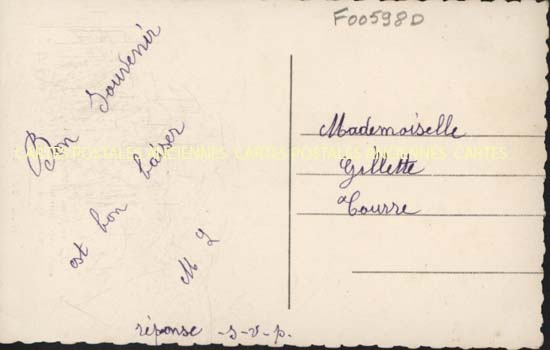 F00598D
Bon Souvenir
est bon baiser
M L
réponse -s-v-p.
Mademoiselle
Gillette
Tourre
CARTES POSTALES ANCIENNES CARTES POSTALES ANCIENNES CARTES